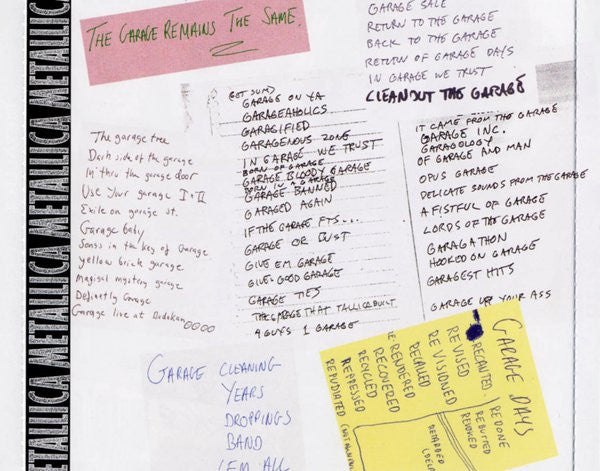 METALLICA METALLICA METALLICA METALLICA
THE GARAGE REMAINS THE SAME.
GARAGE SALE
RETURN TO THE GARAGE
BACK TO THE GARAGE
RETURN OF GARAGE DAYS
IN GARAGE WE TRUST
CLEANOUT THE GARAGE
The garage tree
Dark side of the garage
In thru the garage door
Use Your garage I + II
Exile on garage st.
Garage baby
Songs in the key of Garage
yellow brick garage
Magical mystery garage
Definatly Garage
Garage live at Budokan
GET SUM)
GARAGE ON YA
GARAGEAHOLICS
GARAGIFIED
GARAGENOUS ZONE
IN GARAGE WE TRUST
BORN OF GARAGE
GARAGE BLOODY GARAGE
BORN IN A GARAGE
GARAGE BANNED
GARAGED AGAIN
IF THE GARAGE FTS...
GARAGE OR BUST
GIVE EM GARAGE
GIVE GOOD GARAGE
GARAGE TIES
THE GARAGE THAT TALLICA BUILT
4 GUYS 1 GARAGE
IT CAME FROM THE GARAGE
GARAGE INC.
GARAGOLOGY
OF GARAGE AND MAN
OPUS GARAGE
DELICATE SOUNDS FROM THE GARAGE
A FISTFUL OF GARAGE
LORDS OF THE GARAGE
GARAGATHON
HOOKED ON GARAGE
GARAGEST HITS
GARAGE UP YOUR ASS
GARAGE CLEANING
YEARS
DROPPINGS
BAND
'EM ALL
GARAGE DAYS
REDONE
REBUTTED
REVOKED
RECANTED
REVISED
RE VISIONED
RECALLED
RE RENDERED
RECOVERED
RECYCLED
REPRESSED
REPUDIATED
RETARDED